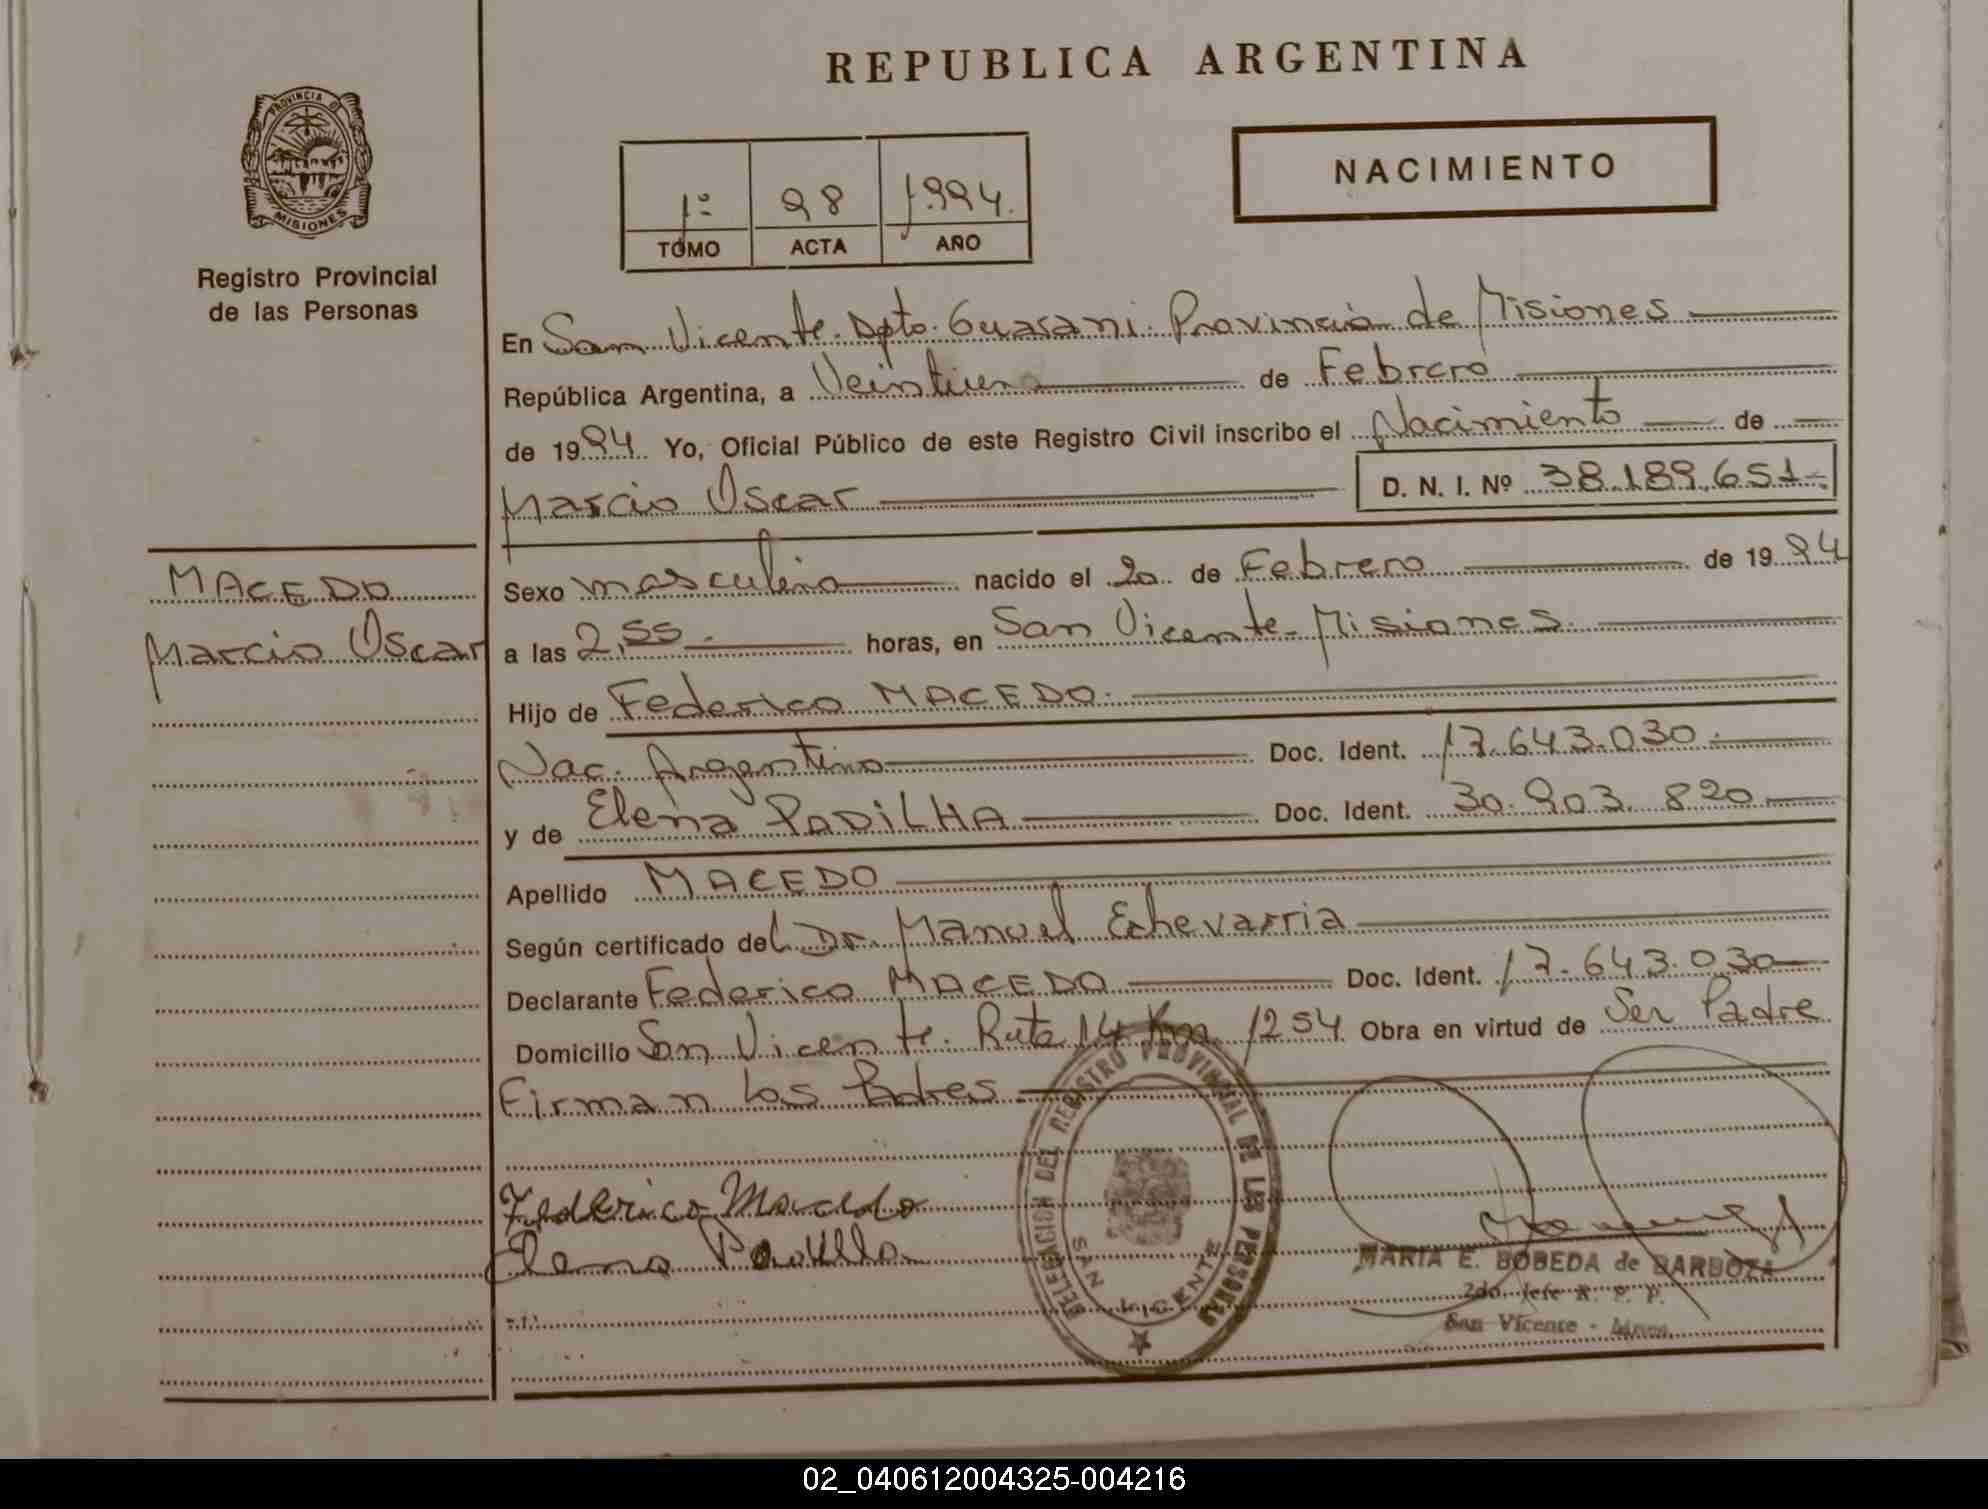 REPUBLICA ARGENTINA
PROVINCIA DE
MISIONES
Registro Provincial
de las Personas
1º 98 1.994.
TOMO ACTA AÑO
NACIMIENTO
En San Vicente. Dpto. Guarani. Provincia de Misiones
República Argentina, a Veintiuno de Febrero
de 1994. Yo, Oficial Público de este Registro Civil inscribo el Nacimiento de
Marcio Oscar D. N. I. Nº 38.189.651-
MACEDO
Marcio Oscar
Sexo masculino nacido el 20 de Febrero de 1994
a las 2,55. horas, en San Vicente- Misiones.
Hijo de Federico MACEDO.
Nac. Argentino Doc. Ident. 17.643.030.
y de Elena PADiLHA Doc. Ident. 30.903.820
Apellido MACEDO
Según certificado del Dr. Manuel Echevarria
Declarante Federico MACEDO Doc. Ident. 17.643.030
Domicilio San Vicente. Ruta 14 Km 1254. Obra en virtud de Ser Padre
Firman Los Padres
Federico Macedo
Elena Padilla
DELEGACION DEL REGISTRO PROVINCIAL DE LAS PERSONAS
SAN VICENTE
MARIA E. BOBEDA de BARBOZA
2do. Jefe R. P. P.
San Vicente - Mnes.
02_040612004325-004216